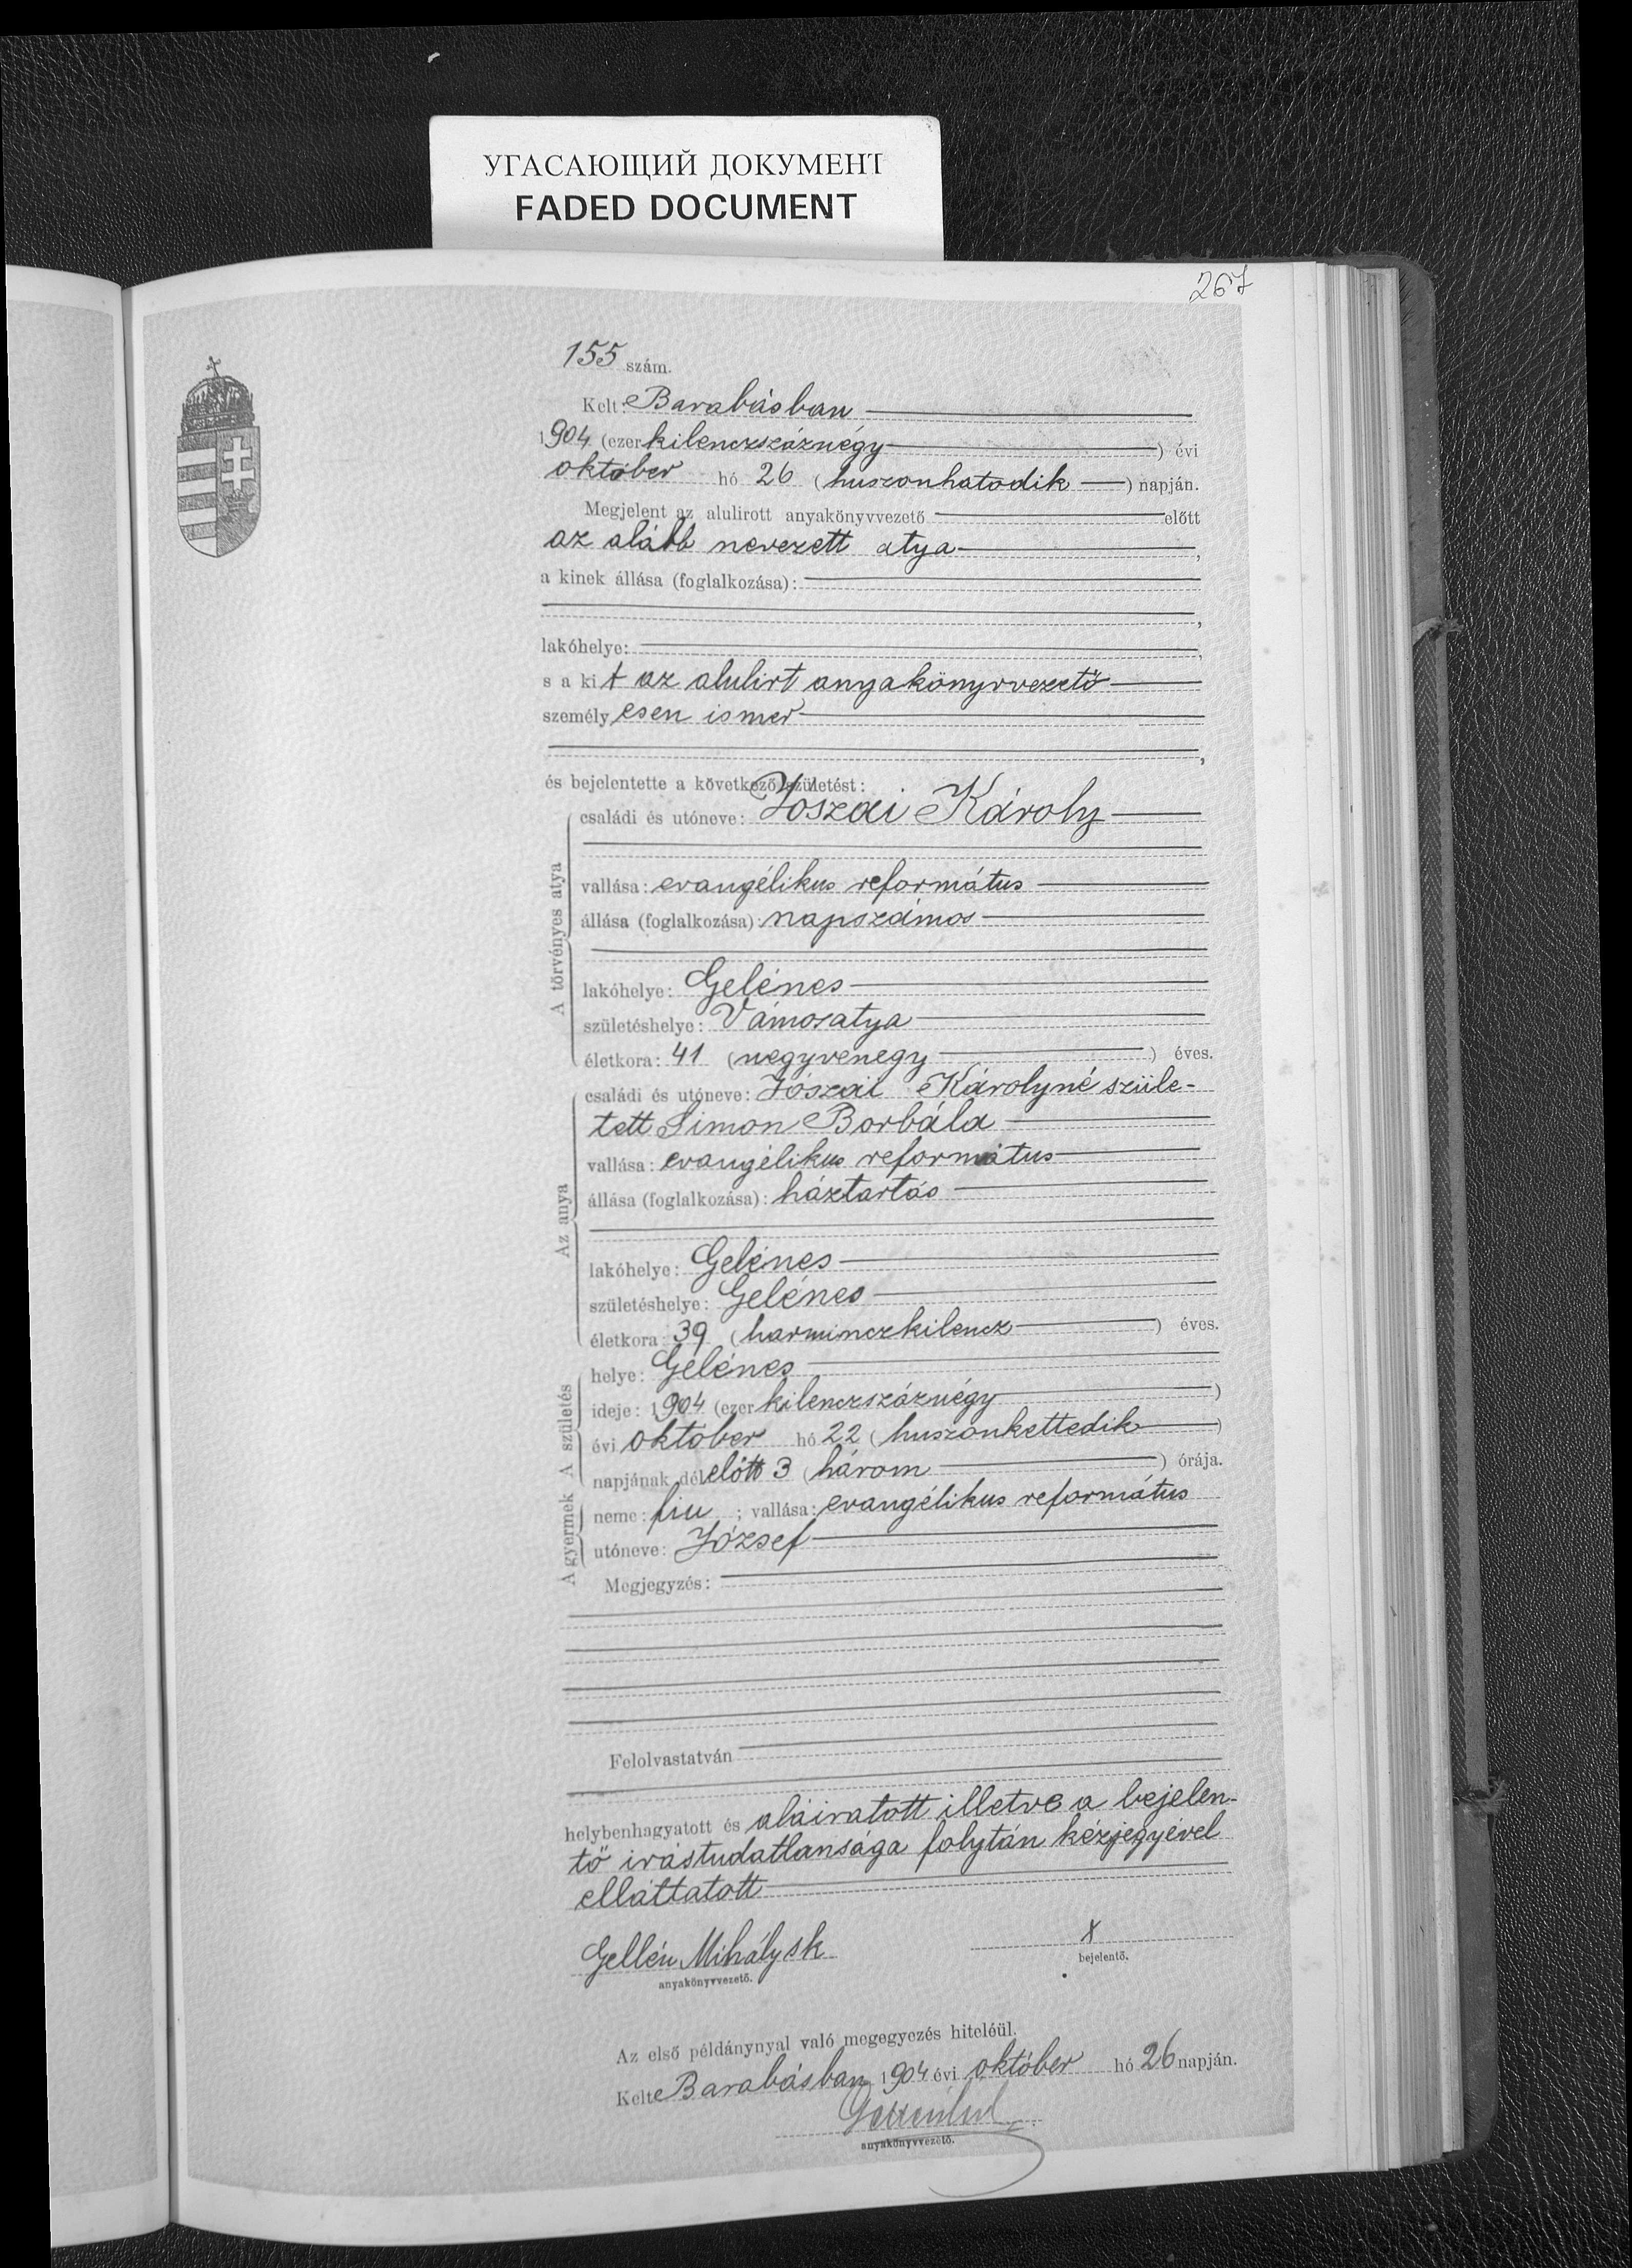 УГАСАЮЩИЙ ДОКУМЕНТ
FADED DOCUMENT
267
155 szám.
Kelt: Barabásban
1904 (ezer kilenczszáznégy) évi
október hó 26 (huszonhatodik) napján.
Megjelent az alulirott anyakönyvvezető előtt
az alább nevezett atya,
a kinek állása (foglalkozása):
,
lakóhelye: ,
s a kit az alulirt anyakönyvvezető
személyesen ismer
,
és bejelentette a következő születést:
A törvényes atya
családi és utóneve: Jószai Károly
vallása: evangélikus református
állása (foglalkozása): napszámos
lakóhelye: Gelénes
születéshelye: Vámosatya
életkora: 41 (negyvenegy) éves.
Az anya
családi és utóneve: Jószai Károlyné szüle-
tett Simon Borbála
vallása: evangélikus református
állása (foglalkozása): háztartás
lakóhelye: Gelénes
születéshelye: Gelénes
életkora: 39 (harminczkilencz) éves.
A gyermek A születés
helye: Gelénes
ideje: 1904 (ezer kilenczszáznégy)
évi október hó 22 (huszonkettedik)
napjának délelőtt 3 (három) órája.
neme: fiu; vallása: evangélikus református
utóneve: József
Megjegyzés:
Felolvastatván
helybenhagyatott és aláiratott illetve a bejelen-
tő irástudatlansága folytán kézjegyével
elláttatott
Gellén Mihály sk x
anyakönyvvezető. bejelentő.
Az első példánynyal való megegyezés hiteléül.
Kelt Barabásban 1904 évi október hó 26 napján.
anyakönyvvezető.